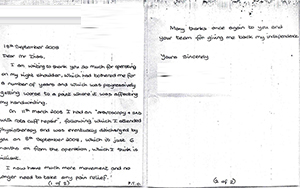 15th September 2008
Dear Mr Imbs,
I am writing to thank you so much for operating
on my right shoulder, which had bothered me for
a number of years and which was progressively
getting worse to a point where it was affecting
my handwriting.
On 11th March 2008 I had an "arthroscopy + SAD
with rota cuff repair", following which I attended
physiotherapy and was eventually discharged by
you on 8th September 2008, which is just 6
months on from the operation, which I think is
brilliant.
I now have much more movement and no
longer need to take any pain relief.
(1 of 2)
P.T.O.
Many thanks once again to you and
your team for giving me back my independence.
Yours Sincerely
(2 of 2)